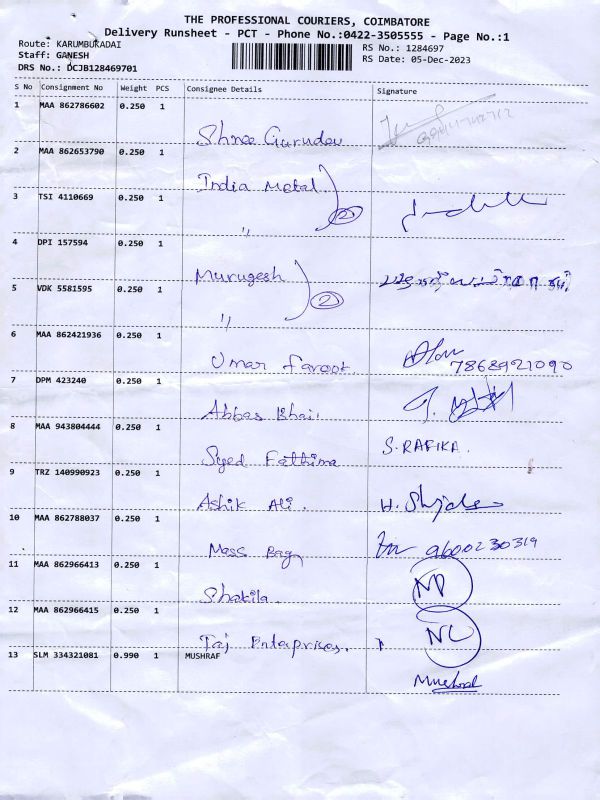 THE PROFESSIONAL COURIERS, COIMBATORE
Delivery Runsheet - PCT - Phone No.:0422-3505555 - Page No.:1
Route: KARUMBUKADAI
RS No.: 1284697
Staff: GANESH
RS Date: 05-Dec-2023
DRS No.: DCJB128469701
S No Consignment No Weight PCS Consignee Details Signature
1 MAA 862786602 0.250 1
Shree Gurudev
2 MAA 862653790 0.250 1
India Metal
3 TSI 4110669 0.250 1
〃 2
4 DPI 157594 0.250 1
Murugesh
5 VDK 5581595 0.250 1
〃 2
6 MAA 862421936 0.250 1
Umar Farook. 7868921090
7 DPM 423240 0.250 1
Abbas Bhai.
8 MAA 943804444 0.250 1
Syed Fathima S. RAFIKA.
9 TRZ 140990923 0.250 1
Ashik Ali. H.
10 MAA 862788037 0.250 1
Mass Bag 9600230319
11 MAA 862966413 0.250 1
Shakila. ND
12 MAA 862966415 0.250 1
Taj Enterprises. NL
13 SLM 334321081 0.990 1 MUSHRAF